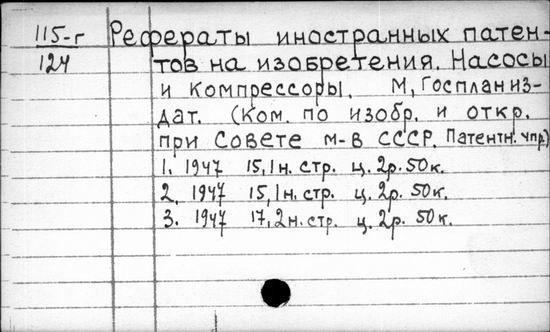 115-г Рефераты иностранных патен-
124 тов на изобретения. Насосы
и компрессоры. М, Госпланиз-
дат. (Ком. по изобр. и откр.
при Совете м-в СССР. Патентн. упр.)
1. 1947 15,1н. стр. ц. 2р. 50к.
2. 1947 15,1н. стр. ц. 2р. 50к.
3. 1947 17,2н. стр. ц. 2р. 50к.